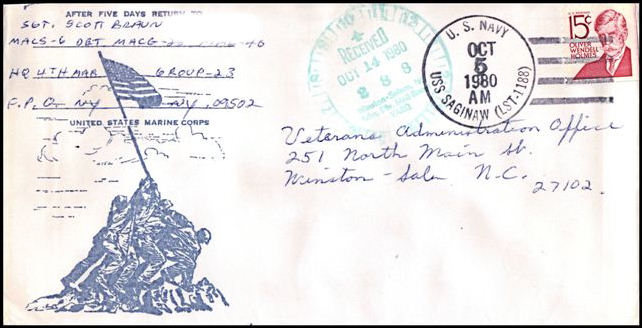 AFTER FIVE DAYS RETURN TO
SGT. SCOTT BRAUN
MACS-6 DET MACG-
HQ 4TH MAR GROUP-23
F.P.O. NY, NY, 09502
UNITED STATES MARINE CORPS
RECEIVED
OCT 14 1980
U.S. NAVY
OCT
5
1980
AM
USS SAGINAW (LST-1188)
15¢
OLIVER
WENDELL
HOLMES
Veterans Administration Office
251 North Main St.
Winston-Salem N.C.
27102.